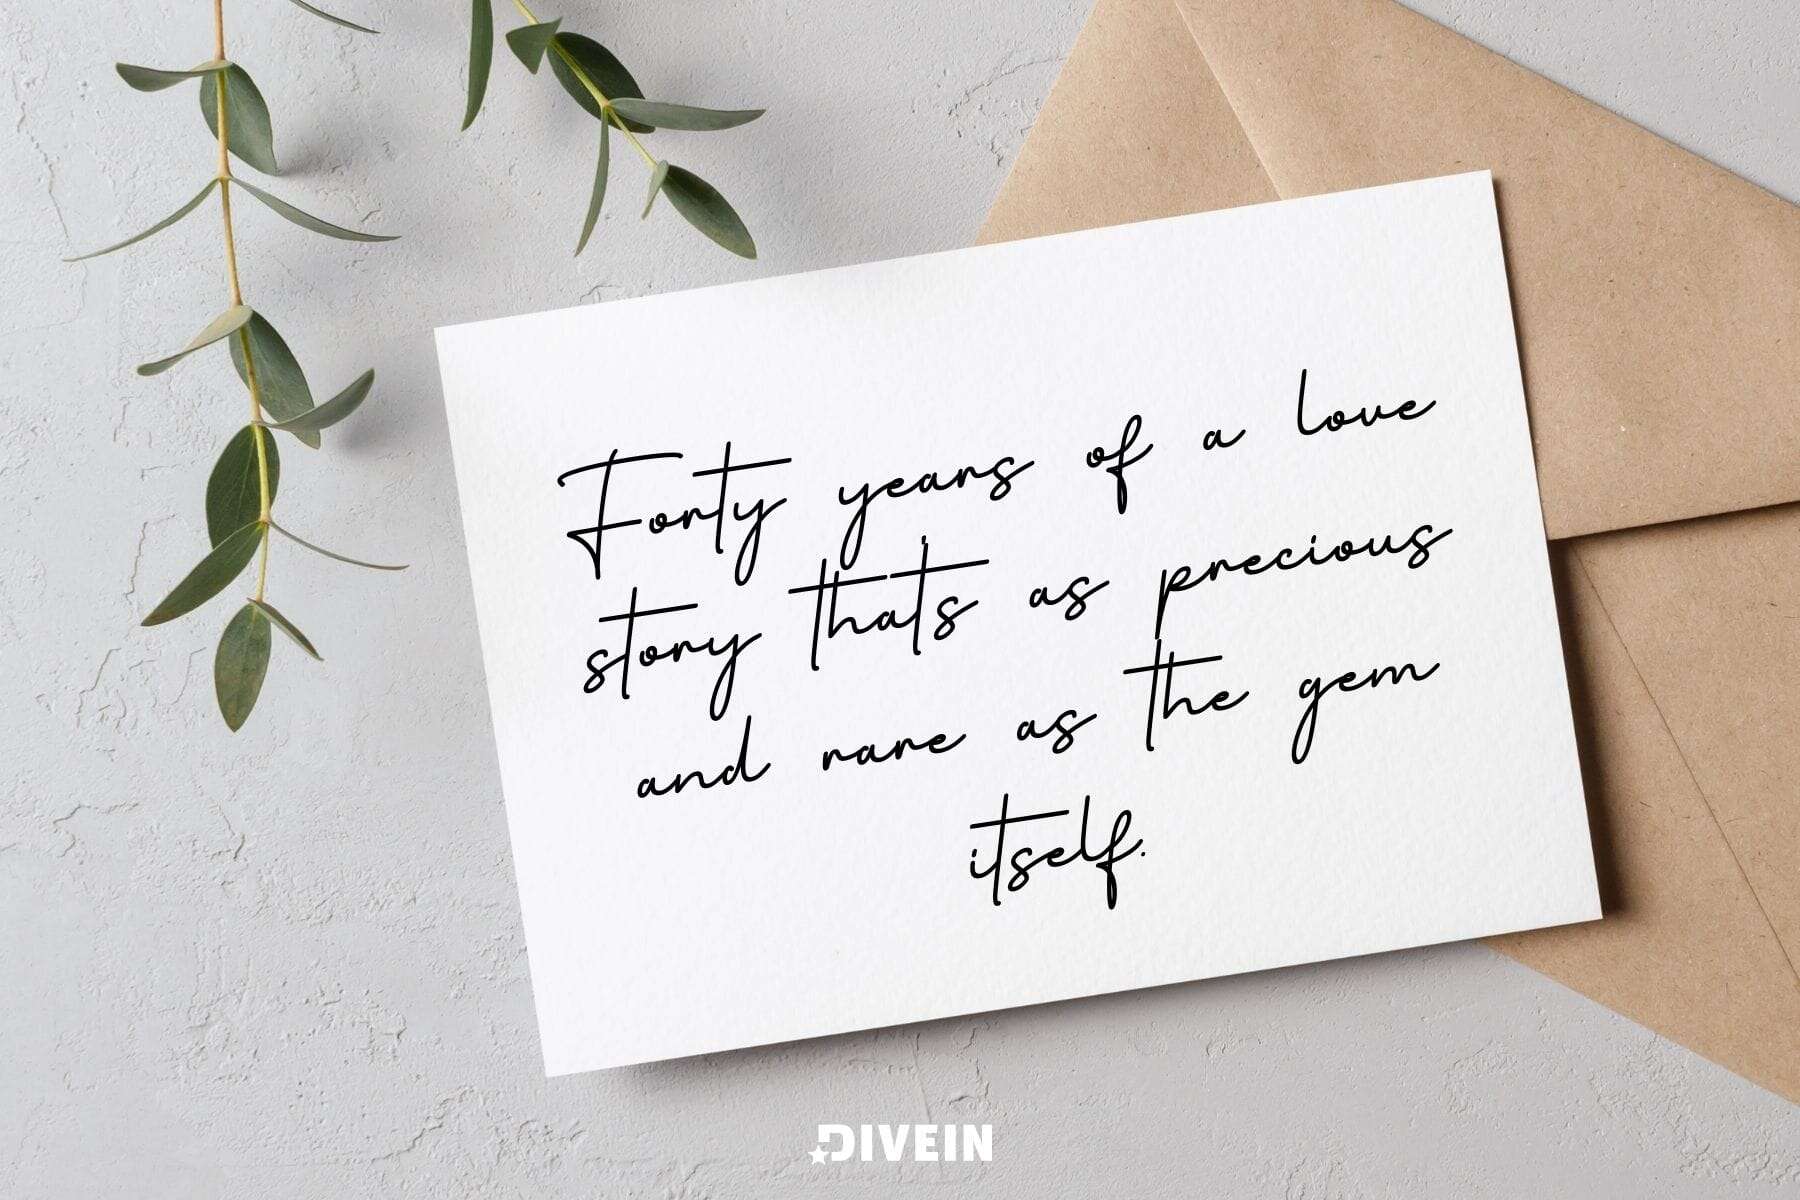 Forty years of a love
story that's as precious
and rare as the gem
itself.
DIVEIN